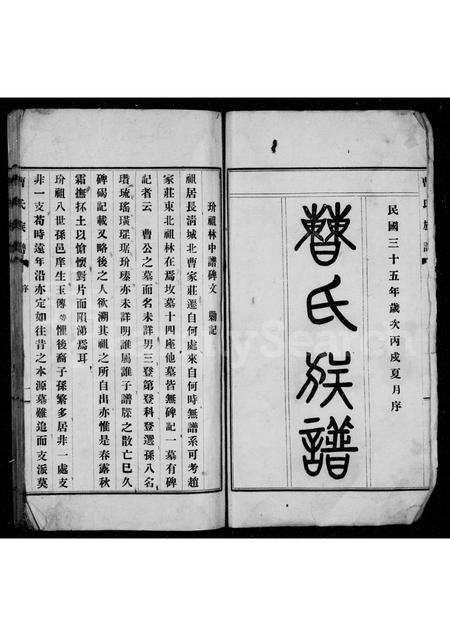 民國三十五年歲次丙戌夏月序
曹氏族譜
曹氏族譜
玢祖林中譜碑文 勦記
祖居長淸城北曹家莊遷自何處來自何時無譜系可考趙
家莊東北祖林在焉坟墓十四座他墓皆無碑記一墓有碑
記者云 曹公之墓而名未詳男三登第登科登選孫八名
瓚琉瑤璜琟琚玢瑧亦未詳明誰屬誰子譜牒之散亡已久
碑碣記載又略後之人欲溯其祖之所自出亦惟是春露秋
霜撫抔土以愴懷對片而隕涕焉耳
玢祖八世孫邑庠生玉傳等惟後裔子孫繁多居非一處支
非一支苟時遠年沿亦定如往昔之本源墓難追而支派莫
曹氏族譜 序